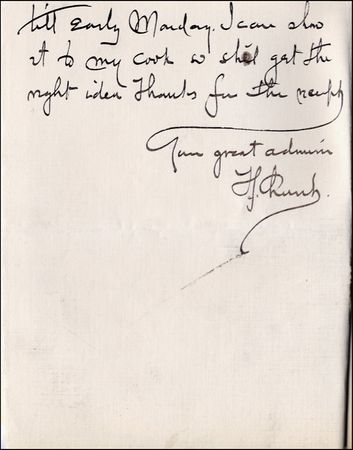 till Early Monday. I can show
it to my cook so she'll get the
right idea Thanks for the
Your great admirer